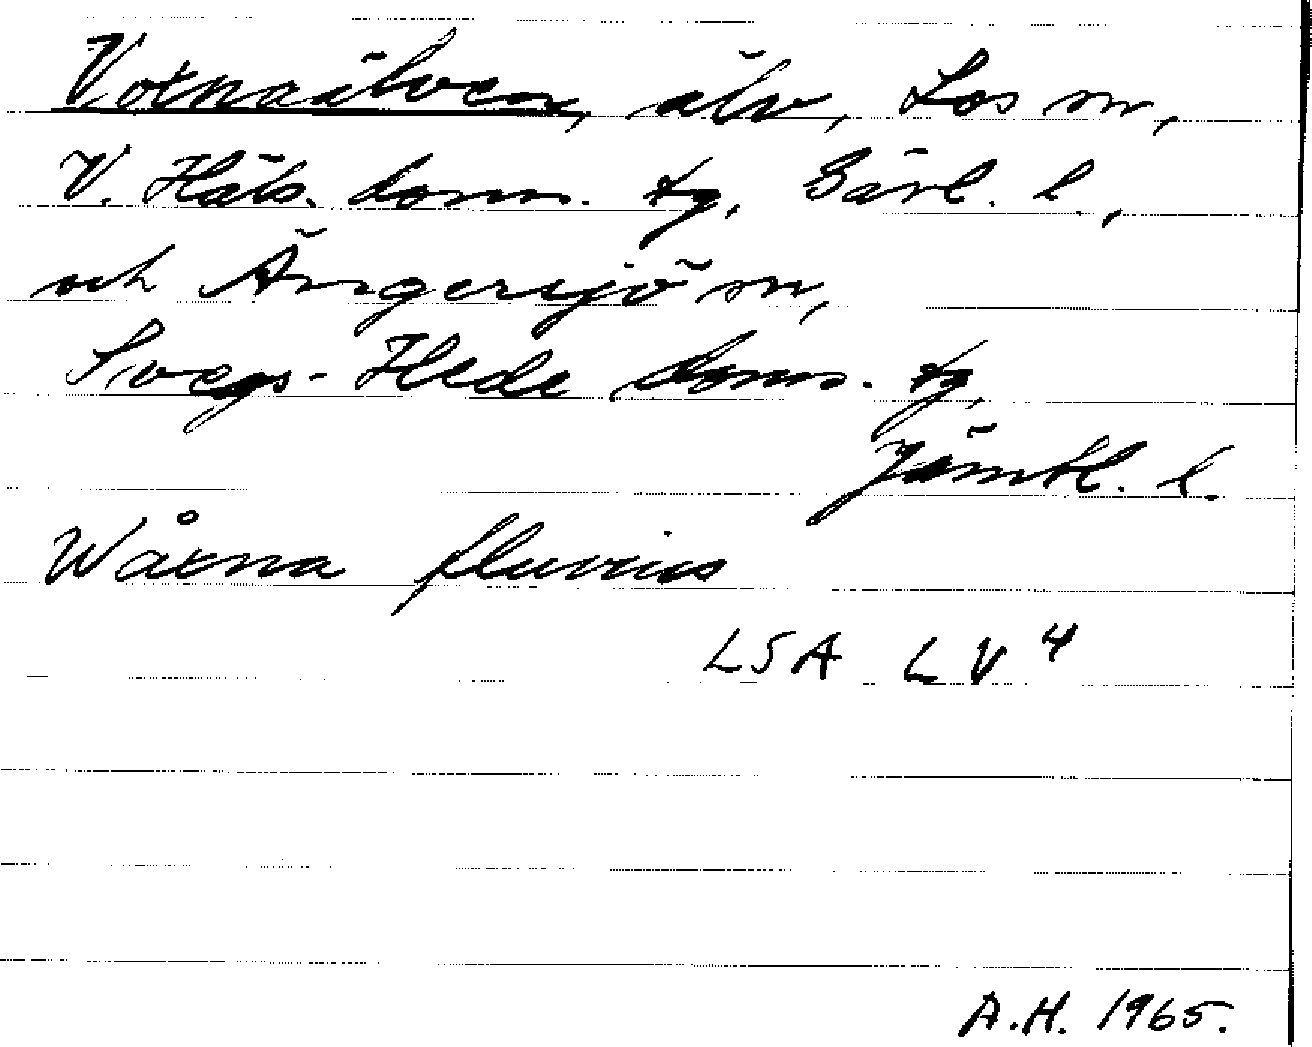 Voxnaälven, älv, Los sn,
V. Häls. doms. tg, Gävl. l.,
och Ängersjö sn,
Svegs-Hede doms. tg,
Jämtl. l.
Wåxna fluvius
LSA LV 4
A.H. 1965.